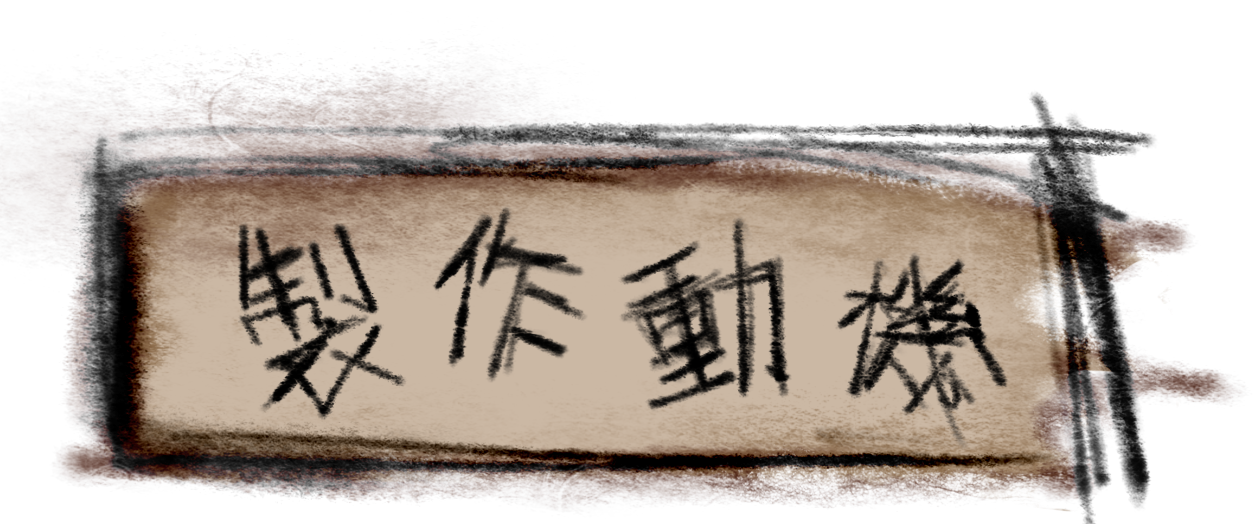 製作動機